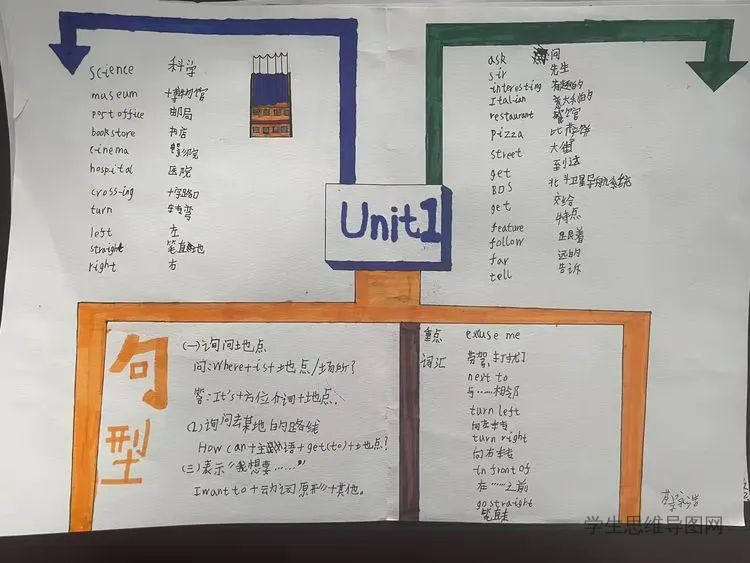 Unit1
science 科学
museum 博物馆
post office 邮局
bookstore 书店
cinema 电影院
hospital 医院
crossing 十字路口
turn 转弯
left 左
straight 笔直地
right 右
ask 问
sir 先生
interesting 有趣的
Italian 意大利的
restaurant 餐馆
pizza 比萨饼
street 大街
get 到达
BDS 北斗卫星导航系统
get 交给
feature 特点
follow 跟着
far 远的
tell 告诉
句型
(一)询问地点
问:Where+is+地点/场所?
答:It's+方位介词+地点.
(2)询问去某地的路线
How can+主语+get(to)+地点?
(三)表示“我想要……”
I want to+动词原形+其他。
重点 excuse me
词汇 劳驾,打扰了
next to
与……相邻
turn left
向左转
turn right
向右转
in front of
在……之前
go straight
学生思维导图网